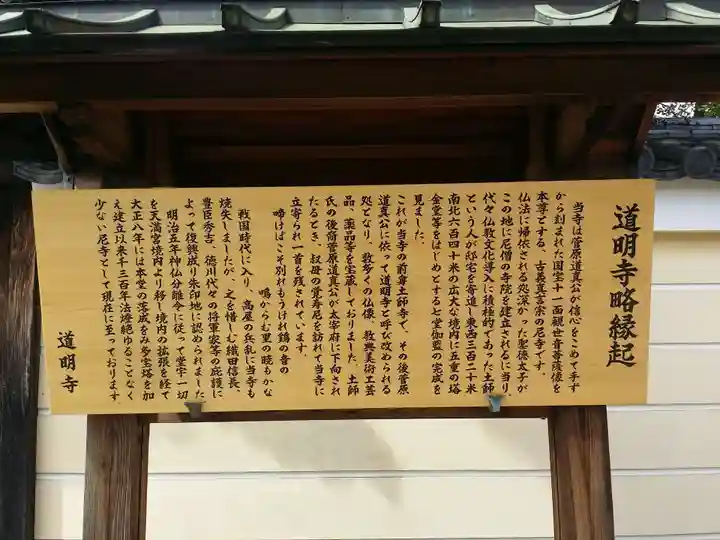 道明寺略縁起
当寺は菅原道真公が信心をこめて手ず
から刻まれた国宝十一面観世音菩薩像を
本尊とする、古義真言宗の尼寺です。
仏法に帰依される処深かった聖徳太子が
この地に尼僧の寺院を建立されるに当り、
代々仏教文化導入に積極的であった土師
という人が邸宅を寄進し東西三百二十米
南北六百四十米の広大な境内に五重の塔
金堂等をはじめとする七堂伽藍の完成を
見ました。
これが当寺の前身土師寺で、その後菅原
道真公に依って道明寺と呼び改められる
処となり、数多くの仏像、教興美術工芸
品、薬品等を宝蔵しておりました。土師
氏の後裔菅原道真公が太宰府に下向され
たるとき、叔母の覚寿尼を訪れて当寺に
立寄られ一首を残されています。
啼けばこそ別れもうけれ鶏の音の
鳴からむ里の暁もかな
戦国時代に入り、高屋の兵乱に当寺も
焼失しましたが、之を惜しむ織田信長、
豊臣秀吉、徳川代々の将軍家等の庇護に
よって復興成り朱印地に認められました
明治五年神仏分離令に従って堂宇一切
を天満宮境内より移し境内の拡張を経て
大正八年には本堂の落成をみ多宝塔を加
え建立以来千三百年法燈絶ゆることなく
少ない尼寺として現在に至っております。
道明寺